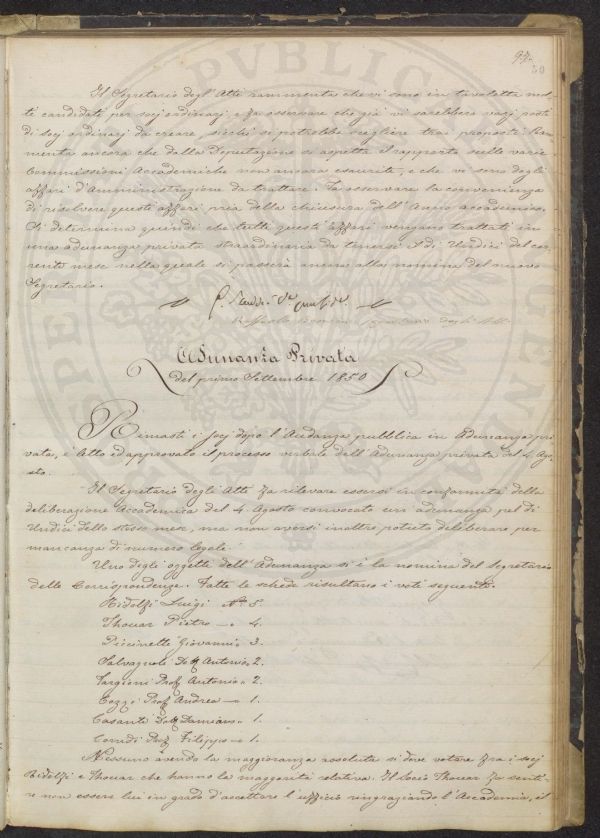 97.
50
Il Segretario degl'Atti rammenta che vi sono in tavoletta mol-
ti candidati per socj ordinarj, e fa osservare che già vi sarebbero varj posti
di socj ordinarj da creare, sicchè si potrebbe scegliere trai proposti. Ram-
menta ancora che dalla Deputazione si aspetta il rapporto sulle varie
Commissioni Accademiche non ancora esaurite, e che vi sono degli
affari d'Amministrazione da trattare. Fa osservare la convenienza
di risolvere questi affari pria della chiusura dell'Anno accademico.
Si determina quindi che tutti questi affari vengano trattati in
una adunanza privata straordinaria da tenersi il dì Undici del cor-
rente mese nella quale si passerà ancora alla nomina del nuovo
Segretario.
Segretario degli Atti
Adunanza Privata
del primo Settembre 1850
Rimasti i socj dopo l'Audanza pubblica in Adunanza pri
vata, è letto ed approvato il processo verbale dell'Adunanza privata del 4 Ago-
sto.
Il Segretario degli Atti fa rilevare essersi in conformità della
deliberazione Accademica del 4. Agosto convocato un adunanza pel dì
Undici dello stesso mese, ma non aversi inoltre potuto deliberare per
mancanza di numero legale.
Uno degli oggetti dell'Adunanza si è la nomina del Segretario
delle Corrispondenze. Fatte le schede risultano i voti seguenti.
Ridolfi Luigi N.° 5.
Thouar Pietro — „ 4.
Piccinetti Giovanni „ 3.
Salvagnoli Dott Antonio „ 2.
Targioni Prof Antonio „ 2.
Cozzi Prof Andrea — „ 1.
Casanti Dott Damiano „ 1.
Corridi Prof Filippo — „ 1.
Nessuno avendo la maggioranza assoluta si deve votare fra i socj
Ridolfi e Thouar che hanno la maggiorità relativa. Il Socio Thouar fa senti-
re non essere lui in grado d'accettare l'ufficio ringraziando l'Accademia, il